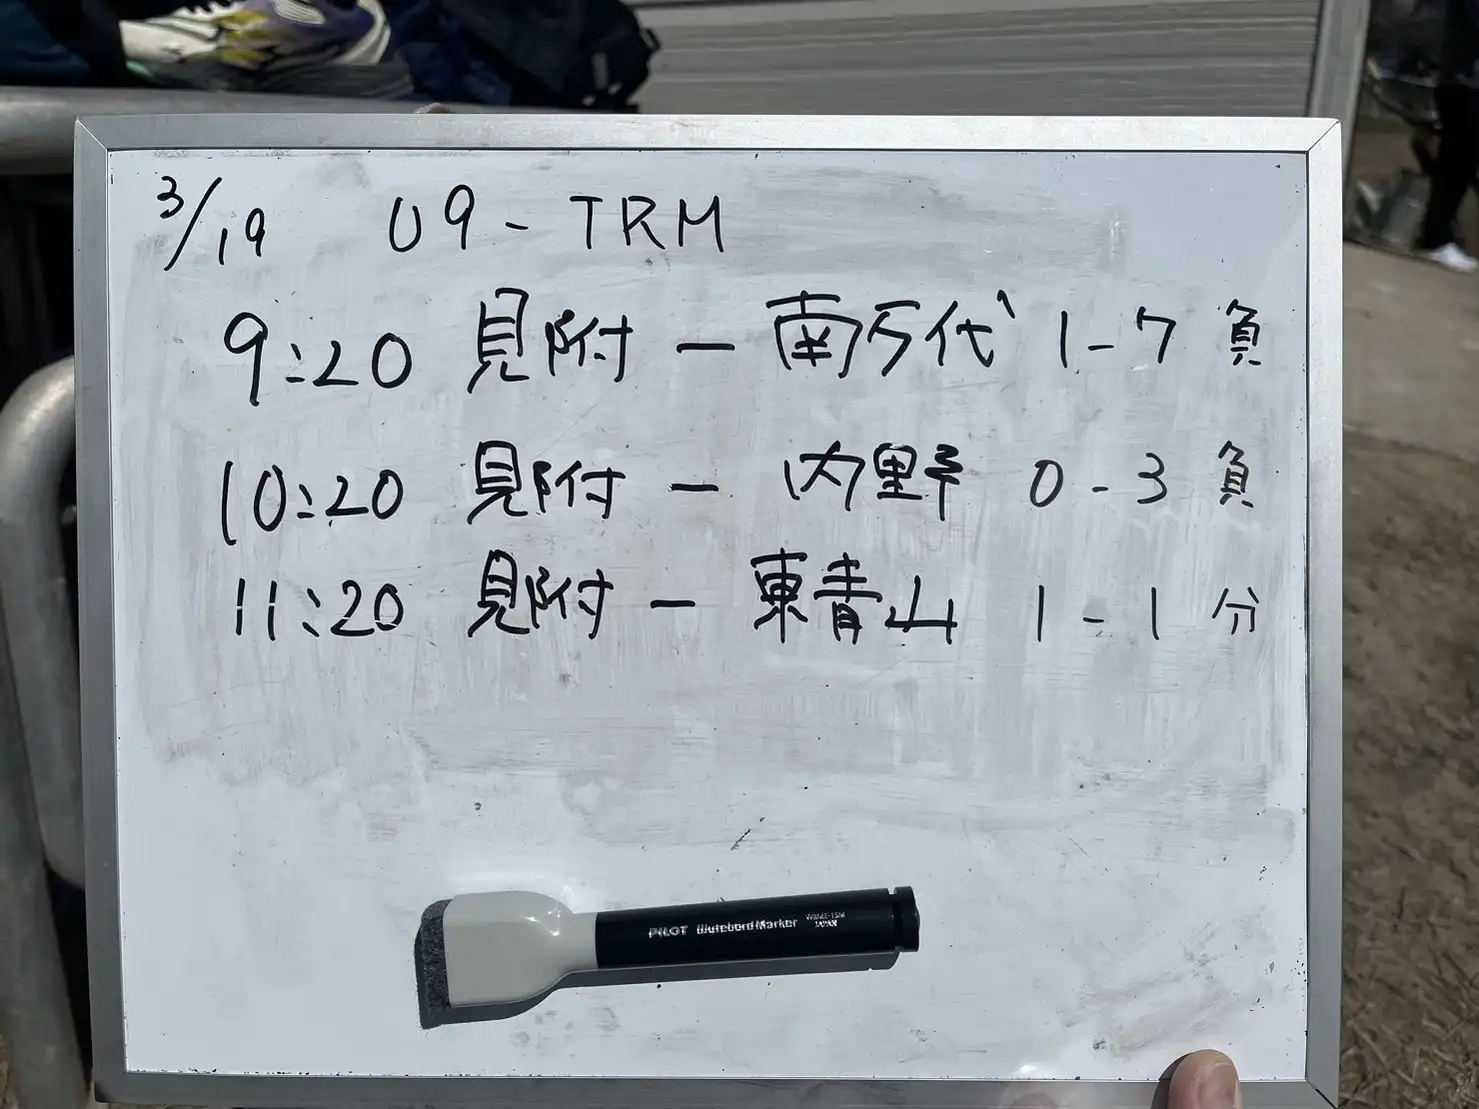 3/19 U9-TRM
9:20 見附 ー 南万代 1-7 負
10:20 見附 ー 内野 0-3 負
11:20 見附 ー 東青山 1-1 分
PILOT WhitebordMarker WBME-15M
JAPAN